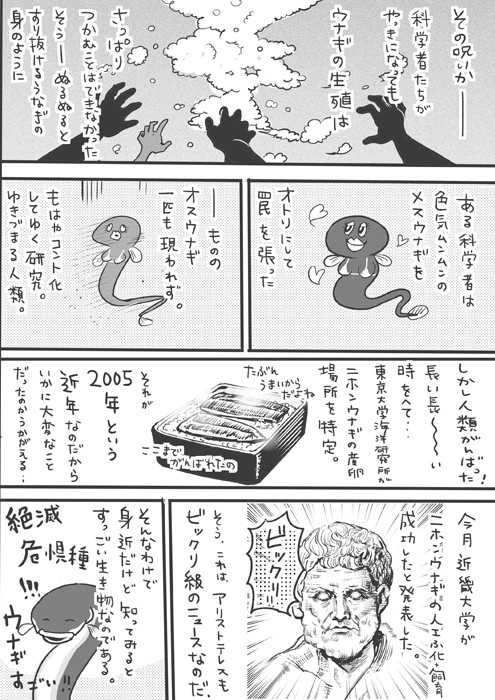 その呪いか――
科学者たちが
やっきになっても
ウナギの生殖は
さっぱり
つかむことはできなかった
そうーぬるぬると
すり抜けるうなぎの
身のように
ある科学者は
色気ムンムンの
メスウナギを
オトリにして
罠を張った
――ものの
オスウナギ
一匹も現われず。
もはやコント化
してゆく研究。
ゆきづまる人類。
しかし人類がんばった!
長い長〜〜〜い
時をへて‥
東京大学海洋研究所が
ニホンウナギの産卵
場所を特定。
たぶん
うまいから
だよね
ここまで
がんばれたの
それが
2005
年という
近年なのだから
いかに大変なこと
だったのかうかがえる‥
今月近畿大学が
ニホンウナギの人工ふ化・飼育
成功したと発表した。
ビックリー
そう、これは、アリストテレスも
ビックリ級のニュースなのだ。
そんなわけで
身近だけど知ってみると
すっごい生き物なのである。
絶滅
危惧種
!!!
ウナギすごい!!